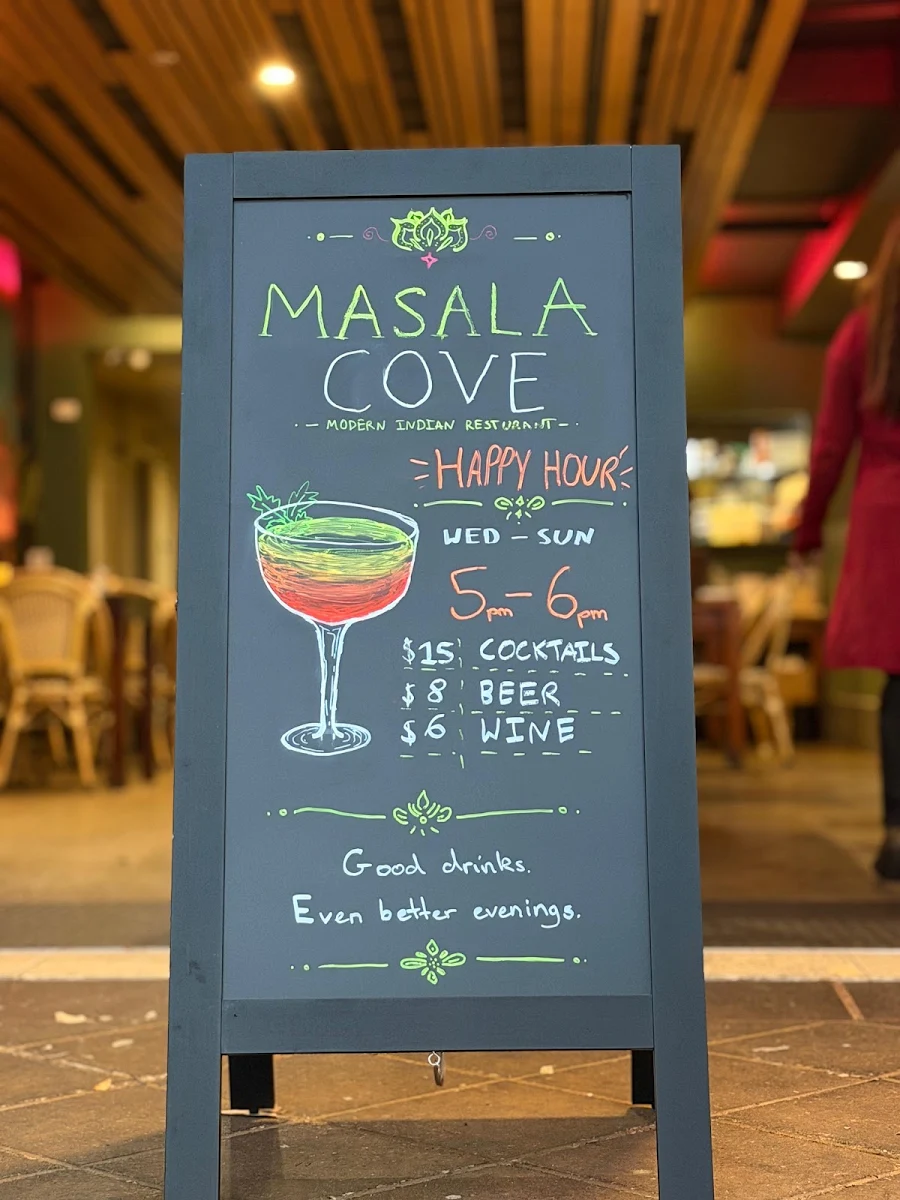 MASALA
COVE
- MODERN INDIAN RESTURANT -
HAPPY HOUR
WED - SUN
5pm - 6pm
$15 COCKTAILS
$8 BEER
$6 WINE
Good drinks.
Even better evenings.